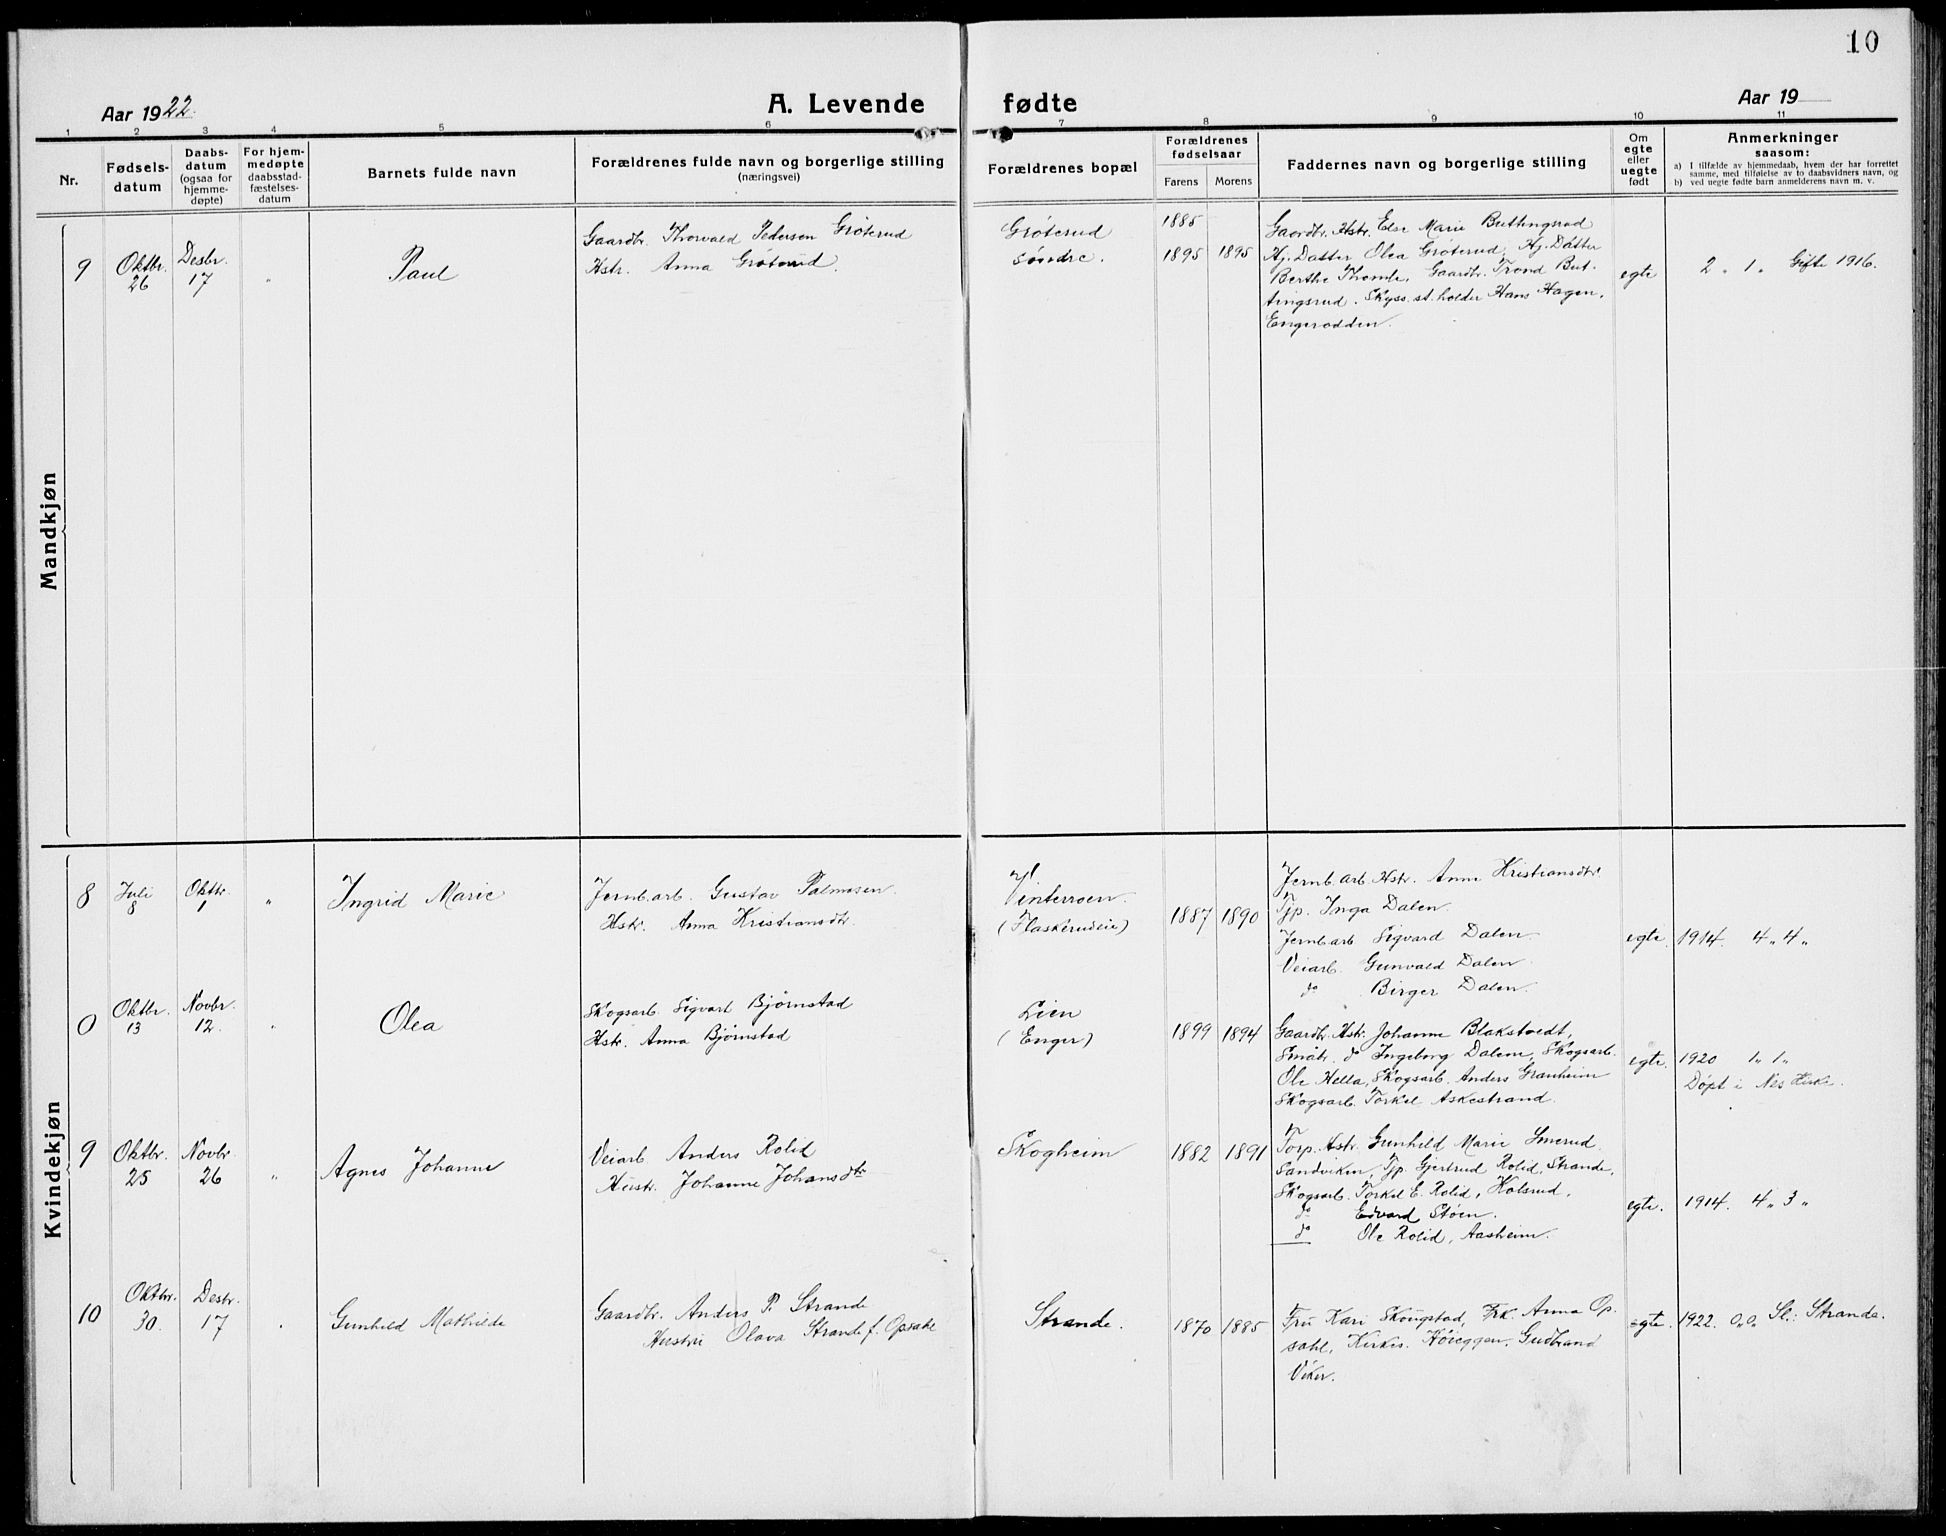 10
Aar 1922.
A. Levende fødte
Aar 19
1 2 3 4 5 6 7 8 9 10 11
Nr.
Fødsels-
datum
Daabs-
datum
(ogsaa for
hjemme-
døpte)
For hjem-
medøpte
daabsstad-
fæstelses-
datum
Barnets fulde navn
Forældrenes fulde navn og borgerlige stilling
(næringsvei)
Forældrenes bopæl
Forældrenes
fødselsaar
Farens Morens
Faddernes navn og borgerlige stilling
Om
egte
eller
uegte
født
Anmerkninger
saasom:
a) I tilfælde av hjemmedaab, hvem der har forrettet
samme, med tilføielse av to daabsvidners navn, og
b) ved uegte fødte barn anmelderens navn m. v.
Mandkjøn
9
Oktbr.
26
Desbr.
17
"
Paul
Gaardbr. Thorvald Pedersen Grøterud
Hstr. Anna Grøterud.
Grøterud
søndre.
1885
1895 1895
Gaardbr. Hstr. Else Marie Buttingsrud
Hj. Datter Olea Grøterud, Hj. Datter
Berthe Thomle, Gaardbr. Trond But-
tingsrud. Skyss.st.holder Hans Hagen,
Engerodden.
egte
2 " 1 " Gifte 1916.
Kvindekjøn
8
Juli
8
Oktbr.
1
"
Ingrid Marie
Jernb.arb. Gustav Palmesen
Hstr. Anna Kristiansdtr.
Vinterroen.
(Flaskerudeie)
1887 1890
Jernb.arb. Hstr. Anne Kristiansdtr.
Tjp. Inga Dalen
Jernb.arb Sigvard Dalen.
Veiarb. Gunvald Dalen.
do Birger Dalen.
egte.
1914. 4 " 4 "
0
Oktbr.
13
Novbr.
12.
"
Olea
Skogsarb. Sigvart Bjørnstad
Hstr. Anna Bjørnstad
Lien
(Enger)
1899 1894
Gaardbr. Hstr. Johanne Blakstvedt,
Småbr. do Ingeborg Dalene, Skogsarb.
Ole Hella, Skogsarb. Anders Granheim
Skogsarb. Torkel Askestrand.
egte.
1920 1 " 1 "
Døpt i Nes Kirke.
9
Oktbr.
25
Novbr.
26
"
Agnes Johanne
Veiarb. Anders Rolid
Hustr. Johanne Johansdtr
Skogheim
1882 1891
Torp. Hstr. Gunhild Marie Smerud
Sandviken, Tjp. Gjertrud Rolid, Strande,
Skogsarb. Torkel E. Rolid, Holsrud,
do Edvard Støen.
do Ole Rolid, Aasheim.
egte.
1914. 4 " 3 "
10
Oktbr.
30.
Desbr.
17
"
Gunhild Mathilde
Gaardbr. Anders P. Strande
Hustru Olava Strande f. Opsahl
Strande.
1870 1885
Fru Kari Skougstad, Frk. Anna Op-
sahl, Kirkes. Høieggen, Gudbrand
Viker.
egte.
1922. 0 " 0 " Sl: Stranda.